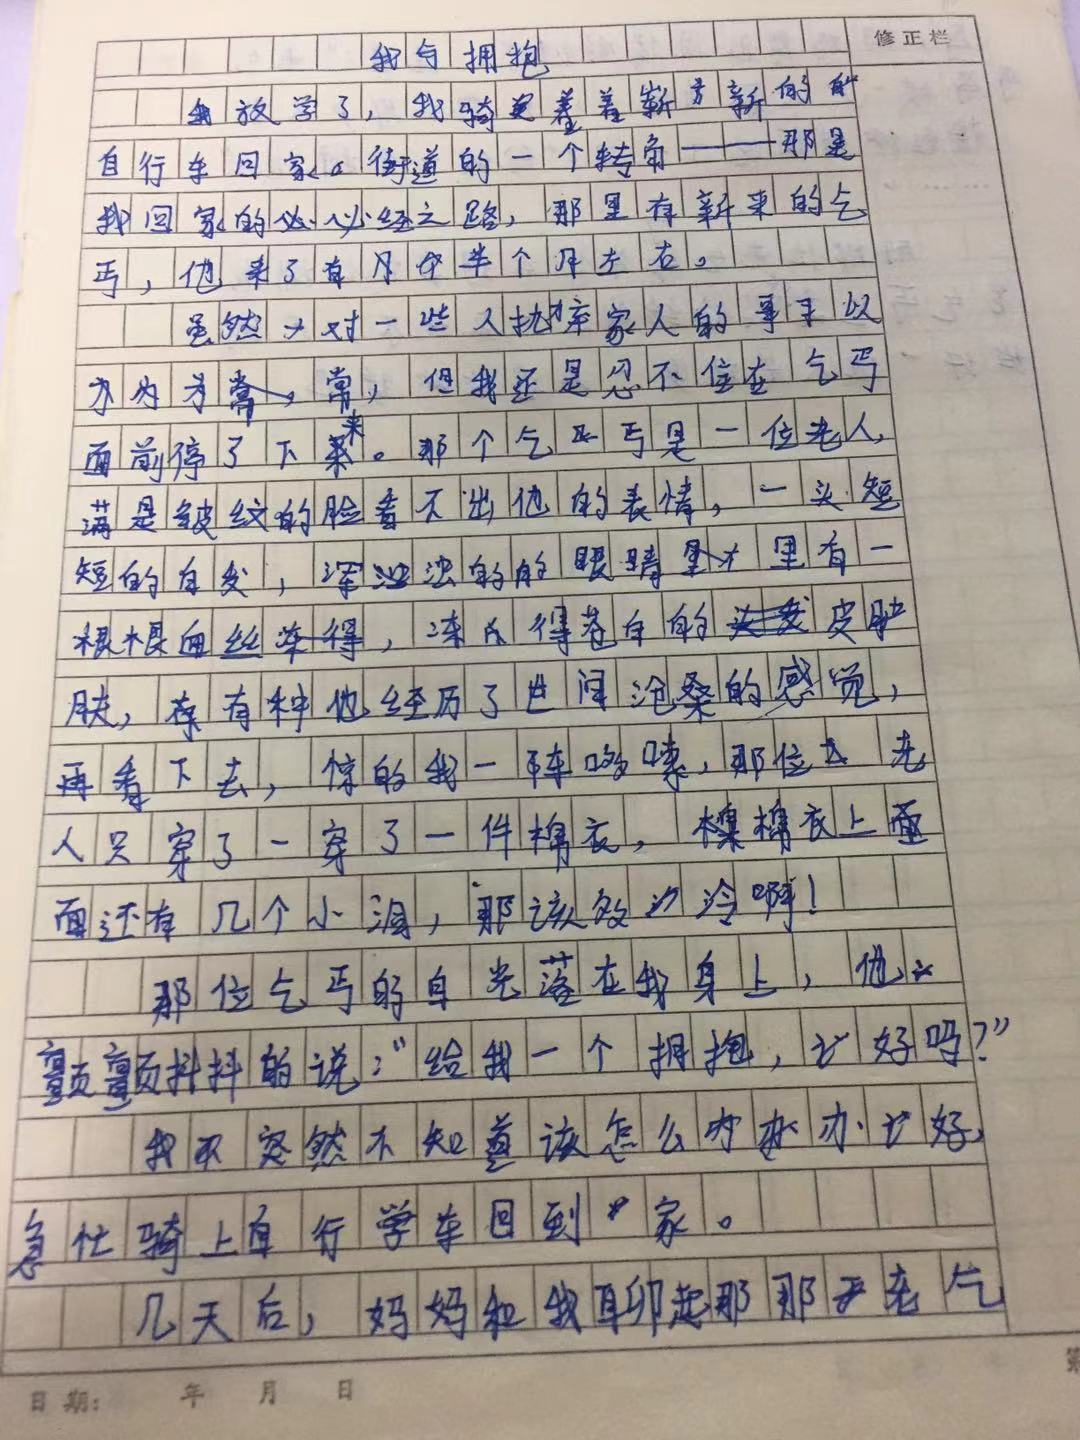 修正栏
我与拥抱
放学了，我骑着崭新的
自行车回家。街道的一个转角——那是
我回家的必经之路，那里有新来的乞
丐，他来了有半个月左右。
虽然对一些人抛弃家人的事习以
为常，但我还是忍不住在乞丐
面前停了下来。那个乞丐是一位老人，
满是皱纹的脸看不出他的表情，一头短
短的白发，深浊的眼睛里有一
根根血丝，冻得苍白的皮
肤，有种他经历了世间沧桑的感觉，
再看下去，惊的我一阵哆嗦，那位老
人只穿了一件棉衣，棉衣上
面还有几个小洞，那该多冷啊！
那位乞丐的目光落在我身上，他
颤颤抖抖的说："给我一个拥抱，好吗？"
我突然不知道该怎么办好，
急忙骑上自行车回到家。
几天后，妈妈和我聊起那老乞
日期： 年 月 日
第